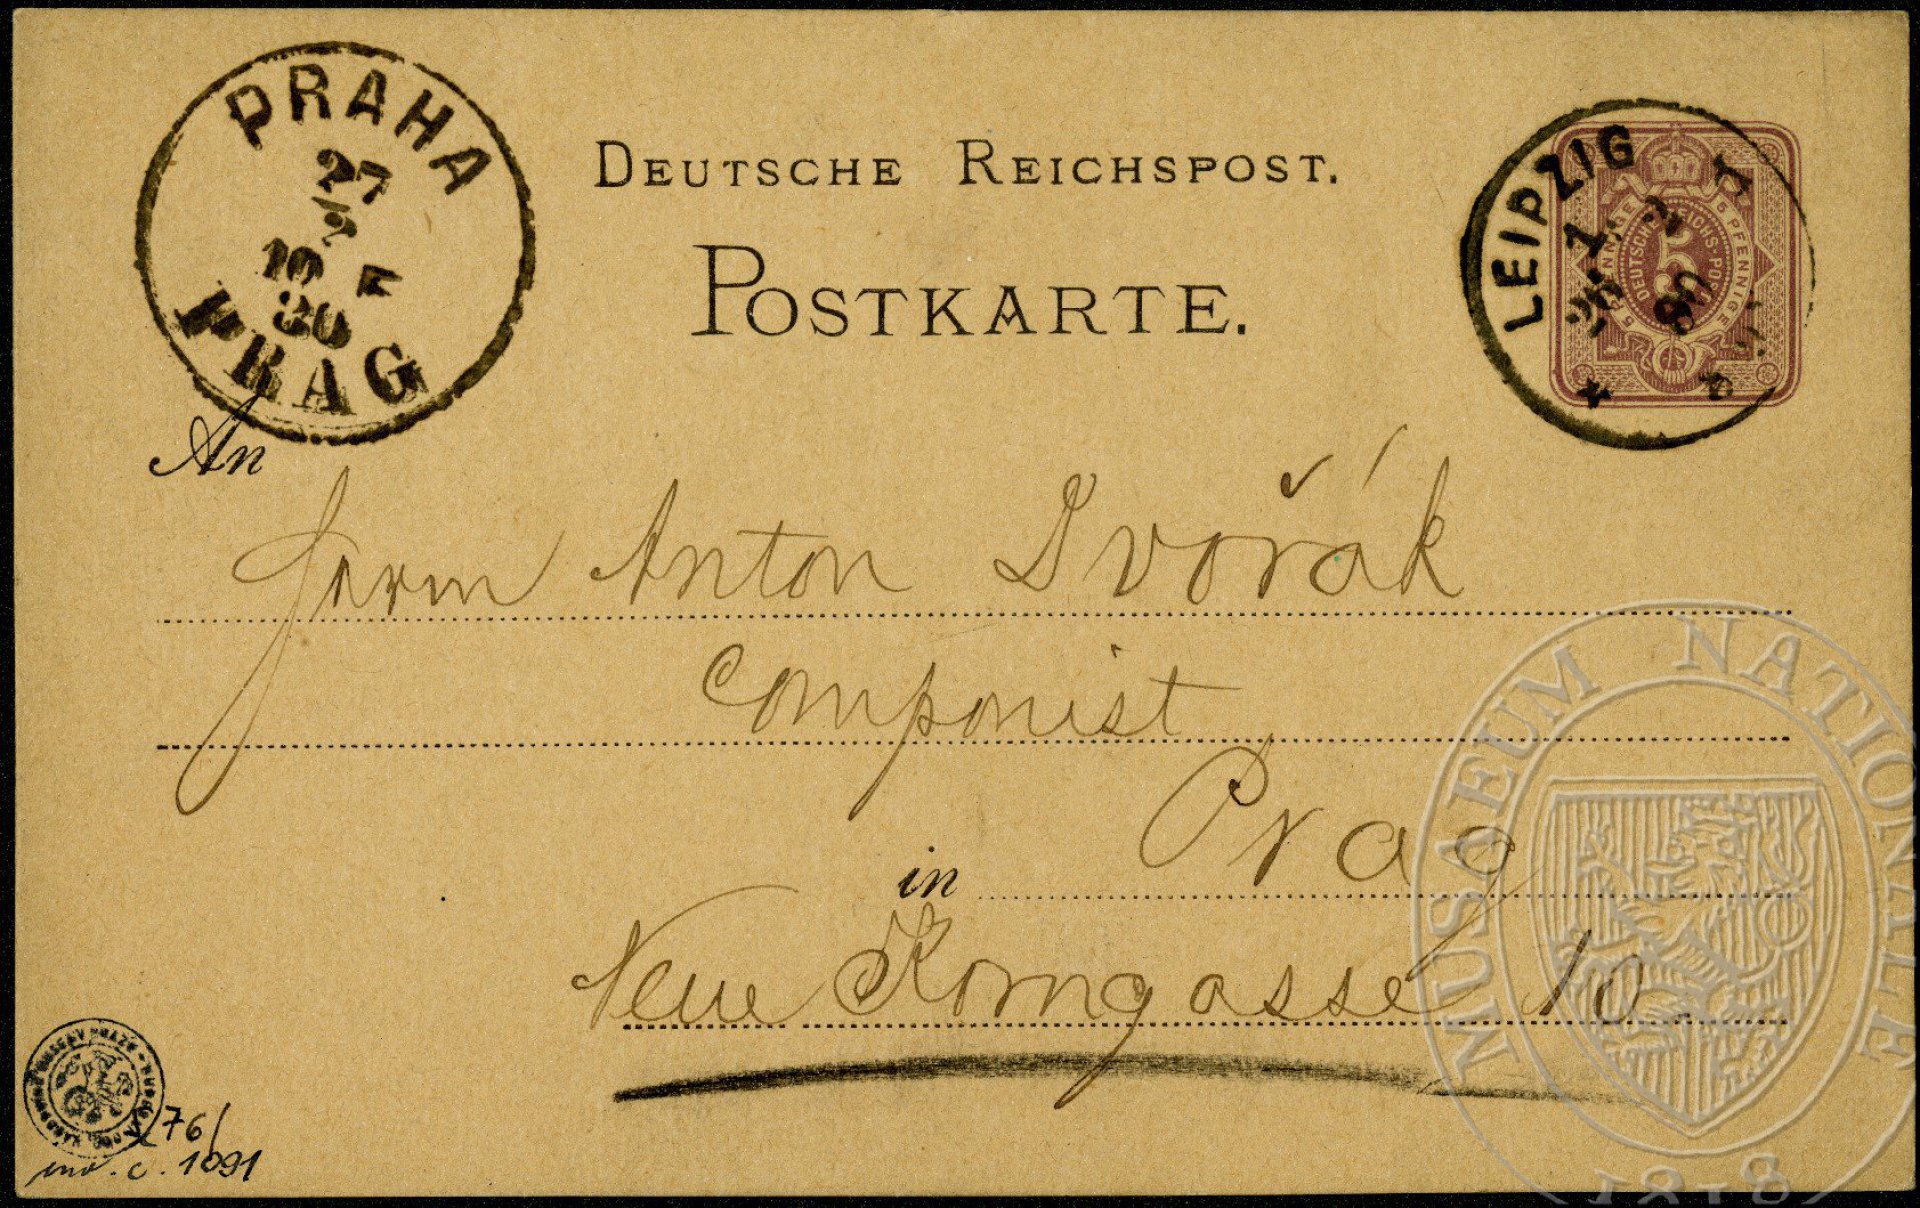 PRAHA
27
12
10 F
80
PRAG
DEUTSCHE REICHSPOST.
POSTKARTE.
LEIPZIG
1
80
DEUTSCHE REICHS-POST
5
5 PFENNIGE
An
Herrn Anton Dvořák
Componist
in Prag
Neue Korngasse 10
76/
inv. č. 1091
MUSAEUM NATIONALE
1818